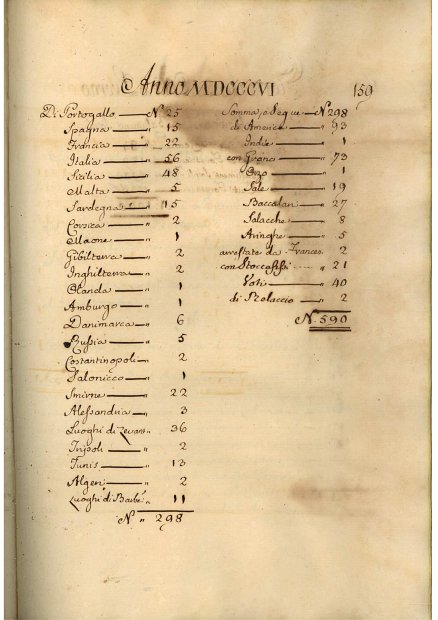 Anno MDCCCVI
159
Di Portogallo N. 25
Spagna " 15
Francia " 22
Italia " 56
Sicilia " 48
Malta " 5
Sardegna " 15
Corsica " 2
Maone " 1
Gibilterra " 2
Inghilterra " 2
Olanda " 1
Amburgo " 1
Danimarca " 6
Russia " 5
Costantinopoli " 2
Salonicco " 1
Smirne " 22
Alessandria " 3
Luoghi di Levan.. " 36
Tripoli " 2
Tunis " 13
Algeri " 2
Luoghi di Barbe " 11
N. " 298
Somma, e Segue N. 298
di America " 93
Indie " 1
con Grano " 73
Orzo " 1
Sale " 19
Baccalari " 27
Salacche " 8
Aringhe " 5
arrestate da Frances. 2
con Stoccofissi " 21
Voti " 40
di Rilaccio " 2
N. 590